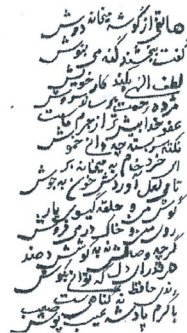 هاتفی از گوشه میخانه دوش
گفت ببخشند گنه می بنوش
لطف الهی بکند کار خویش
مژده رحمت برساند سروش
عفو خدا بیشتر از جرم ماست
نکته سربسته چه دانی خموش
این خرد خام به میخانه بر
تا می لعل آوردش خون به جوش
گوش من و حلقه گیسوی یار
روی من و خاک در می فروش
گرچه وصالش نه به کوشش دهند
هر قدر ای دل که توانی بکوش
رندی حافظ نه گناهیست صعب
با کرم پادشه عیب پوش